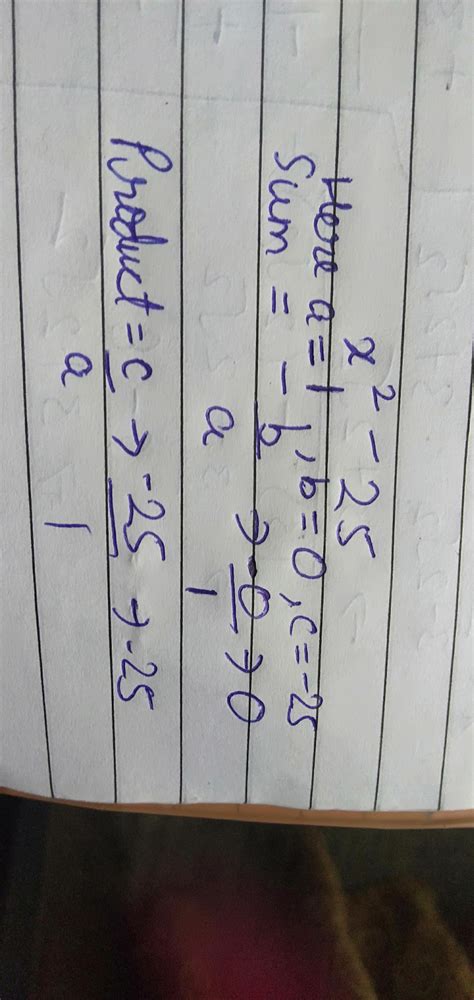 x² - 25
Here a = 1, b = 0, c = -25
Sum = -b/a → -0/1 → 0
Product = c/a → -25/1 → -25